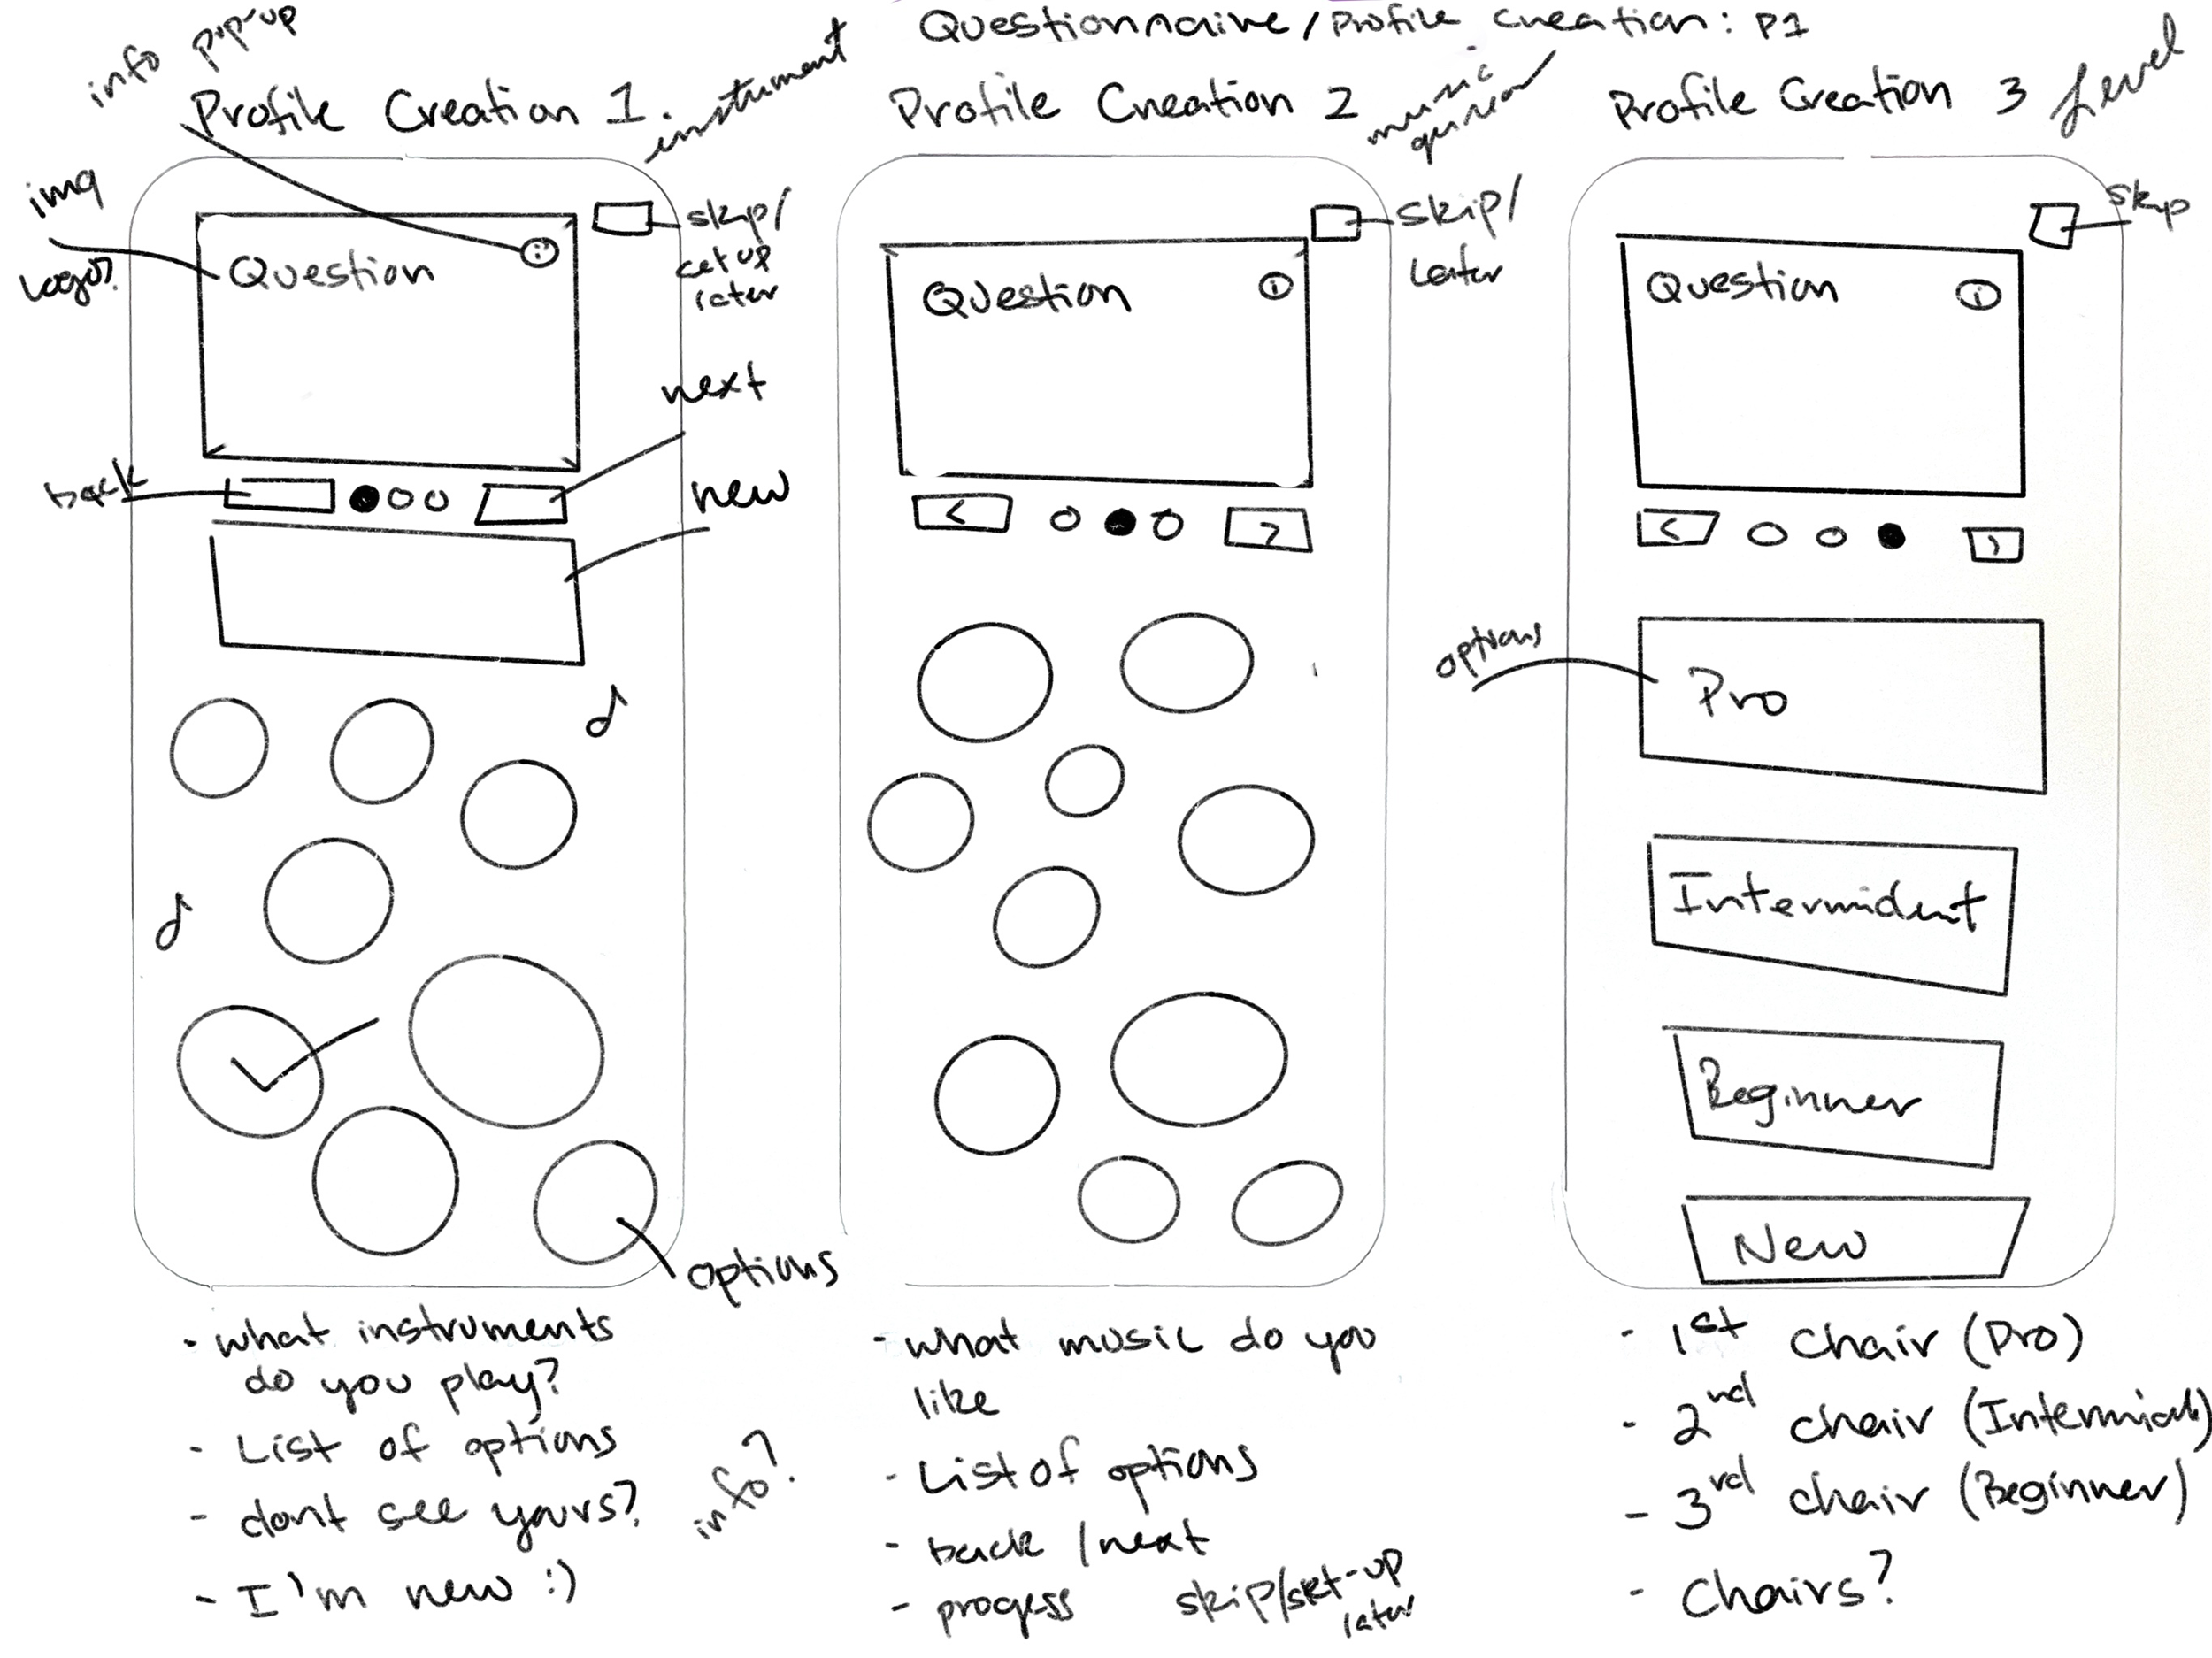 Questionnaire/Profile Creation: P1
info pop-up
Profile Creation 1.
instrument
img
logo?
Question
i
skip/
set up
later
next
back
new
options
- what instruments
do you play?
- List of options
- dont see yours?
- I'm new :)
info?
Profile Creation 2
music
Question
i
skip/
Later
<
>
- what music do you
like
- List of options
- back / next
- progess
skip/set-up
later
Profile Creation 3
Level
skip
Question
i
<
>
options
Pro
Intermident
Beginner
New
- 1st chair (Pro)
- 2nd chair
- 3rd chair (Beginner)
- Chairs?